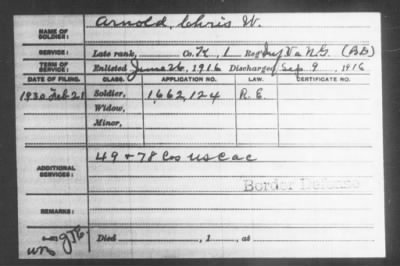 NAME OF SOLDIER: Arnold, Chris W.
SERVICE: Late rank, Co. K, 1 Reg't Inf Va N.G. (BD)
TERM OF SERVICE: Enlisted June 26, 1916 Discharged Sep 9, 1916
DATE OF FILING. CLASS. APPLICATION NO. LAW. CERTIFICATE NO.
1930 Feb 21 Soldier, 1,662,124 R. E.
Widow,
Minor,
ADDITIONAL SERVICES: 49 & 78 Cos USCAC
Border Defense
REMARKS:
Died , 1 , at